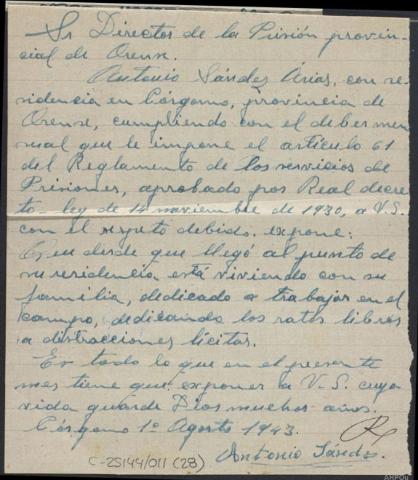 Sr Director de la Prisión provin-
cial de Orense.
Antonio Sández Arias, con re-
sidencia en Córgomo, provincia de
Orense, cumpliendo con el deber men-
sual que le impone el artículo 61
del Reglamento de los servicios de
Prisiones, aprobado por Real decre-
to-ley de 14 noviembre de 1930, a V.S.
con el respeto debido. expone:
Que desde que llegó al punto de
su residencia está viviendo con su
familia, dedicado a trabajar en el
campo, dedicando los ratos libres
a distracciones lícitas.
Es todo lo que en el presente
mes tiene que exponer a V.S. cuya
vida guarde Dios muchos años.
Córgomo 1º Agosto 1943.
Antonio Sández.
C-25144/011 (28)